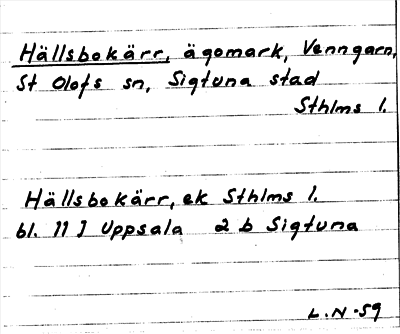 Hällsbokärr, ägomark, Venngarn,
St Olofs sn, Sigtuna stad
Sthlms l.
Hällsbokärr, ek Sthlms l.
bl. 11 I Uppsala 2 b Sigtuna
L. N -59